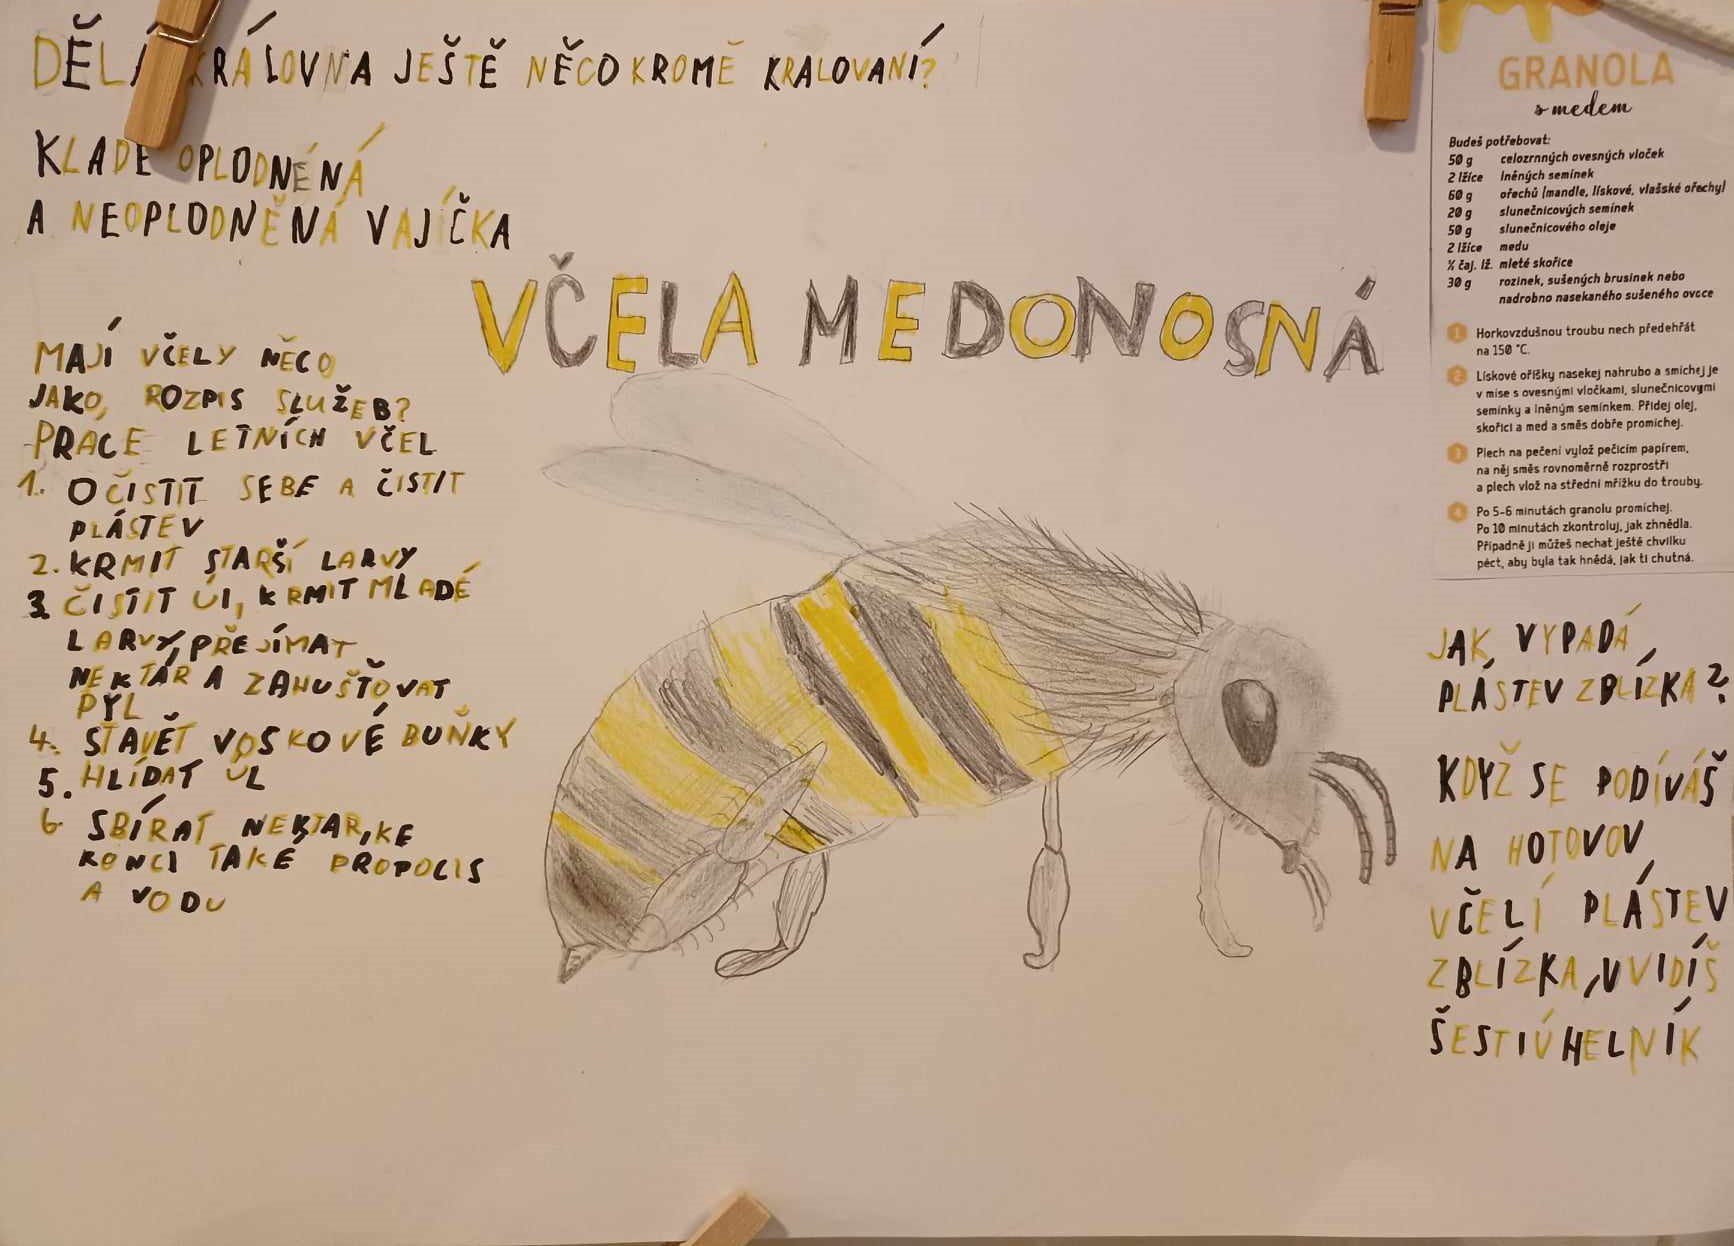 DĚLÁ KRÁLOVNA JEŠTĚ NĚCO KROMĚ KRALOVANÍ?
KLADE OPLODNĚNÁ
A NEOPLODNĚNÁ VAJÍČKA
VČELA MEDONOSNÁ
MAJÍ VČELY NĚCO
JAKO, ROZPIS SLUŽEB?
PRACE LETNÍCH VČEL
1. OČISTIT SEBE A ČISTIT
PLÁSTEV
2. KRMIT STARŠÍ LARVY
3. ČISTIT ÚL, KRMIT MLADÉ
LARVY, PŘEJÍMAT
NEKTÁR A ZAHUŠŤOVAT
PYL
4. STAVĚT VOSKOVÉ BUŇKY
5. HLÍDAT ÚL
6. SBÍRAT NEKTAR, KE
KONCI TAKÉ PROPOLIS
A VODU
GRANOLA
s medem
Budeš potřebovat:
50 g celozrnných ovesných vloček
2 lžíce lněných semínek
60 g ořechů (mandle, lískové, vlašské ořechy)
20 g slunečnicových semínek
50 g slunečnicového oleje
2 lžíce medu
½ čaj. lž. mleté skořice
30 g rozinek, sušených brusinek nebo
nadrobno nasekaného sušeného ovoce
1 Horkovzdušnou troubu nech předehřát
na 150 °C.
2 Lískové oříšky nasekej nahrubo a smíchej je
v míse s ovesnými vločkami, slunečnicovými
semínky a lněným semínkem. Přidej olej,
skořici a med a směs dobře promíchej.
3 Plech na pečení vylož pečicím papírem,
na něj směs rovnoměrně rozprostři
a plech vlož na střední mřížku do trouby.
4 Po 5-6 minutách granolu promíchej.
Po 10 minutách zkontroluj, jak zhnědla.
Případně ji můžeš nechat ještě chvilku
péct, aby byla tak hnědá, jak ti chutná.
JAK VYPADÁ,
PLÁSTEV ZBLÍZKA?
KDYŽ SE PODÍVÁŠ
NA HOTOVOV,
VČELÍ PLÁSTEV
ZBLÍZKA, UVIDÍŠ
ŠESTIÚHELNÍK